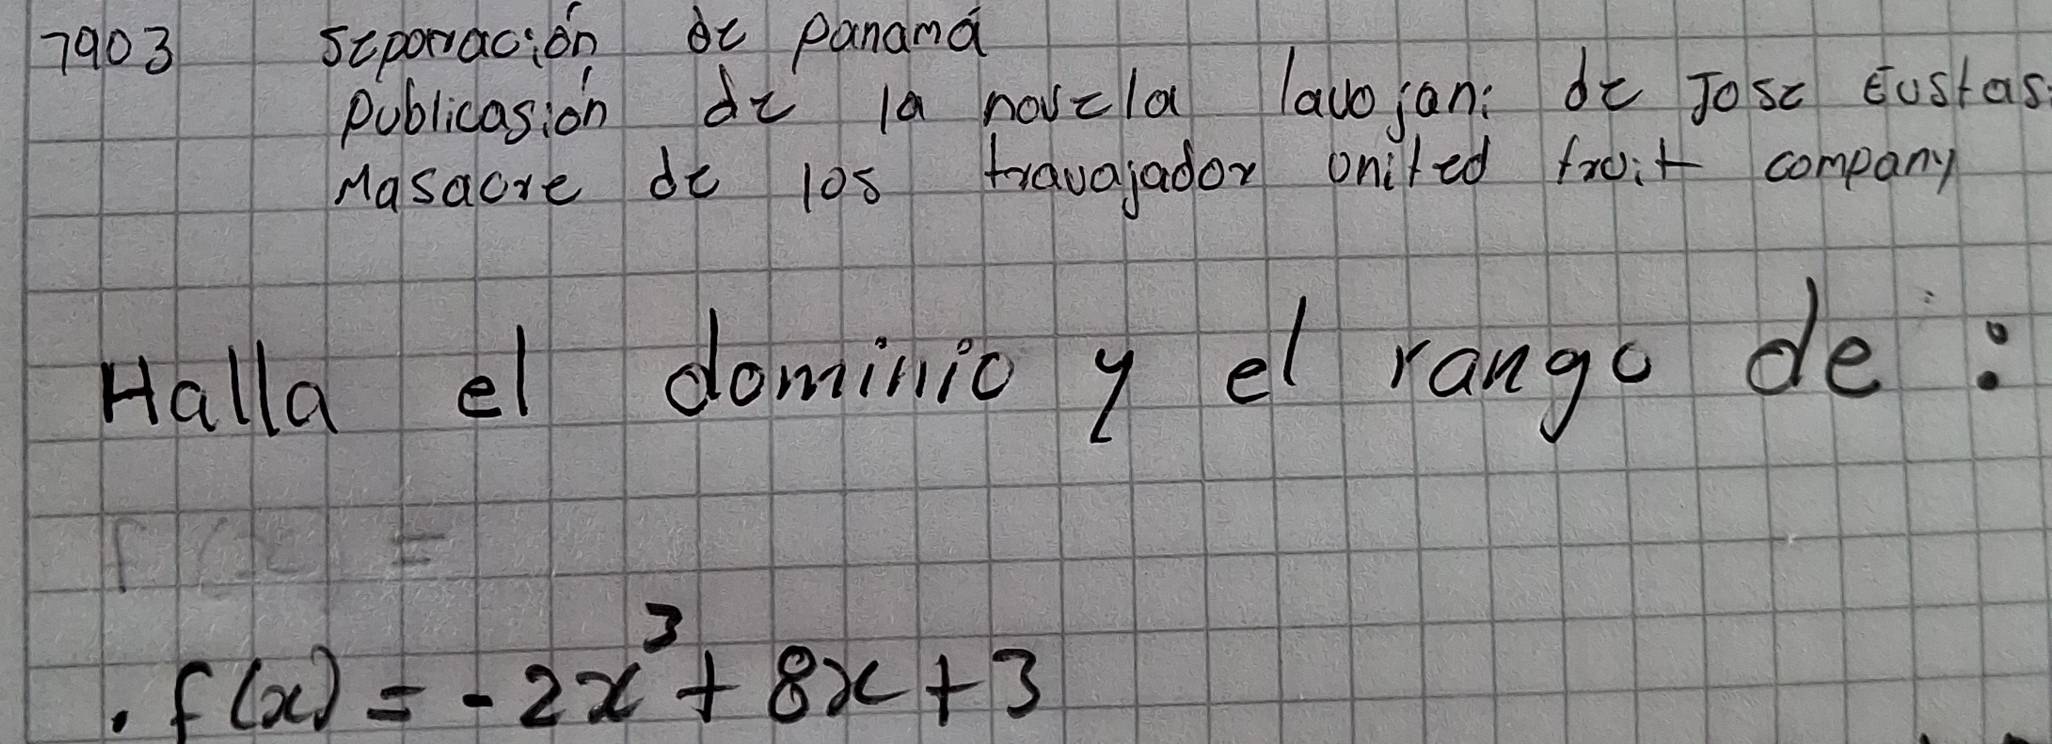 1903 separación de panamá
publicasión de la novela lavojani de Jose Eustasi
Masacre de los travajador united fruit company
Halla el dominio y el rango de :
f(x) =
. f(x) = - 2x³ + 8x + 3